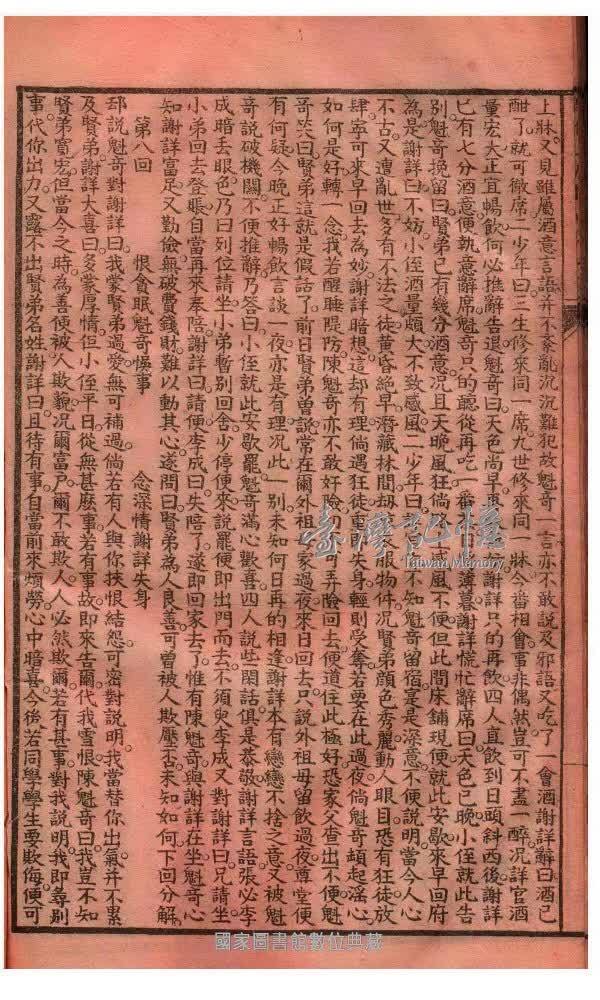 上牀又見雖屬酒意言語并不紊亂沉沉難犯故魁奇一言亦不敢說及邪語又吃了一會酒謝詳辭曰酒已
酣了就可徹席二少年曰三生修來同一席九世修來同一牀今番相會事非偶然豈可不盡一醉况詳官酒
量宏大正宜暢飲何必推辭告退魁奇曰天色尚早再謝詳只的再飲四人直飲到日頭斜西後謝詳
已有七分酒意便執意辭席魁奇只的聽從再吃一番日薄暮謝詳慌忙辭席曰天色已晚小侄就此告
別魁奇挽留曰賢弟已有幾分酒意况且天晚風狂倘路感風不便但此間床鋪現便就此安歇來早回府
為是謝詳曰不妨小侄酒量頗大不致感風二少年曰不知魁奇留宿寔是深意不便說明當今人心
不古又遭亂世多有不法之徒黃昏絕早潛藏林間刼衣服物件况賢弟顏色秀麗動人眼目恐有狂徒放
肆寧可來早回去為妙謝詳暗想這却有理倘遇狂徒重則失身輕則受奪若要在此過夜倘魁奇頓起滛心
如何是好轉一念我若醒睡隄防陳魁奇亦不敢奸險切可弄險回去便道住此極好恐家父查出不便魁
奇笑曰賢弟這就是假話了前日賢弟曾說常在爾外祖家過夜來日回去只說外祖母留飲過夜尊堂便
有何疑今晚正好暢飲言談一夜亦是有理况此一別未知何日再的相逢謝詳本有戀戀不捨之意又被魁
奇說破機關不便推辭乃答曰小侄就此安歇罷魁奇滿心歡喜四人說些閑話俱是恭敬謝詳言語張必李
成暗丢眼色乃曰列位請坐小弟暫別回舍少停便來說罷便即出門而去不須臾李成又對謝詳曰兄請坐
小弟回去登賬自當再來奉陪謝詳曰請便李成曰失陪了遂即回家去了惟有陳魁奇與謝詳在坐魁奇心
知謝詳富足又勤儉無破費錢財難以動其心遂問曰賢弟為人良善可曾被人欺壓否未知如何下回分解
第八回 恨貪眠魁奇悞事 念深情謝詳失身
却說魁奇對謝詳曰我蒙賢弟過愛無可補過倘若有人與你挾恨結怨可密對說明我當替你出氣并不累
及賢弟謝詳大喜曰多蒙厚情但小侄平日從無甚麽事若有事故即來告爾代我雪恨陳魁奇曰我豈不知
賢弟富宏但當今之時為善便被人欺貌况爾富戶爾不敢欺人人必然欺爾若有甚事對我說明我即尋別
事代你出力又露不出賢弟名姓謝詳曰且待有事自當前來煩勞心中暗喜今後若同學學生要欺侮便可
臺灣記憶
Taiwan Memory
國家圖書館數位典藏